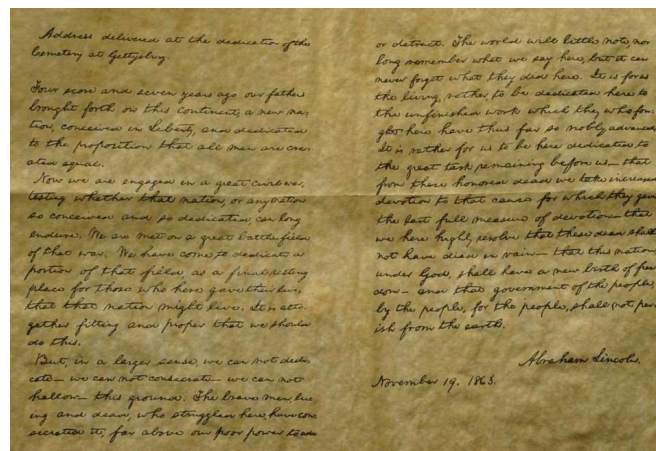 Address delivered at the dedication of the
Cemetery at Gettysburg.
Four score and seven years ago our fathers
brought forth on this continent, a new na-
tion, conceived in Liberty, and dedicated
to the proposition that all men are cre-
ated equal.
Now we are engaged in a great civil war,
testing whether that nation, or any nation
so conceived and so dedicated, can long
endure. We are met on a great battle field
of that war. We have come to dedicate a
portion of that field, as a final resting
place for those who here gave their lives,
that that nation might live. It is alto-
gether fitting and proper that we should
do this.
But, in a larger sense, we can not dedi-
cate— we can not consecrate— we can not
hallow— this ground. The brave men, liv-
ing and dead, who struggled here, have con-
secrated it, far above our poor power to add
or detract. The world will little note, nor
long remember what we say here, but it can
never forget what they did here. It is for us
the living, rather, to be dedicated here to
the unfinished work which they who fou-
ght here have thus far so nobly advanced.
It is rather for us to be here dedicated to
the great task remaining before us— that
from these honored dead we take increased
devotion to that cause for which they gave
the last full measure of devotion— that
we here highly resolve that these dead shall
not have died in vain— that this nation,
under God, shall have a new birth of free
dom— and that government of the people,
by the people, for the people, shall not per-
ish from the earth.
Abraham Lincoln.
November 19, 1863.